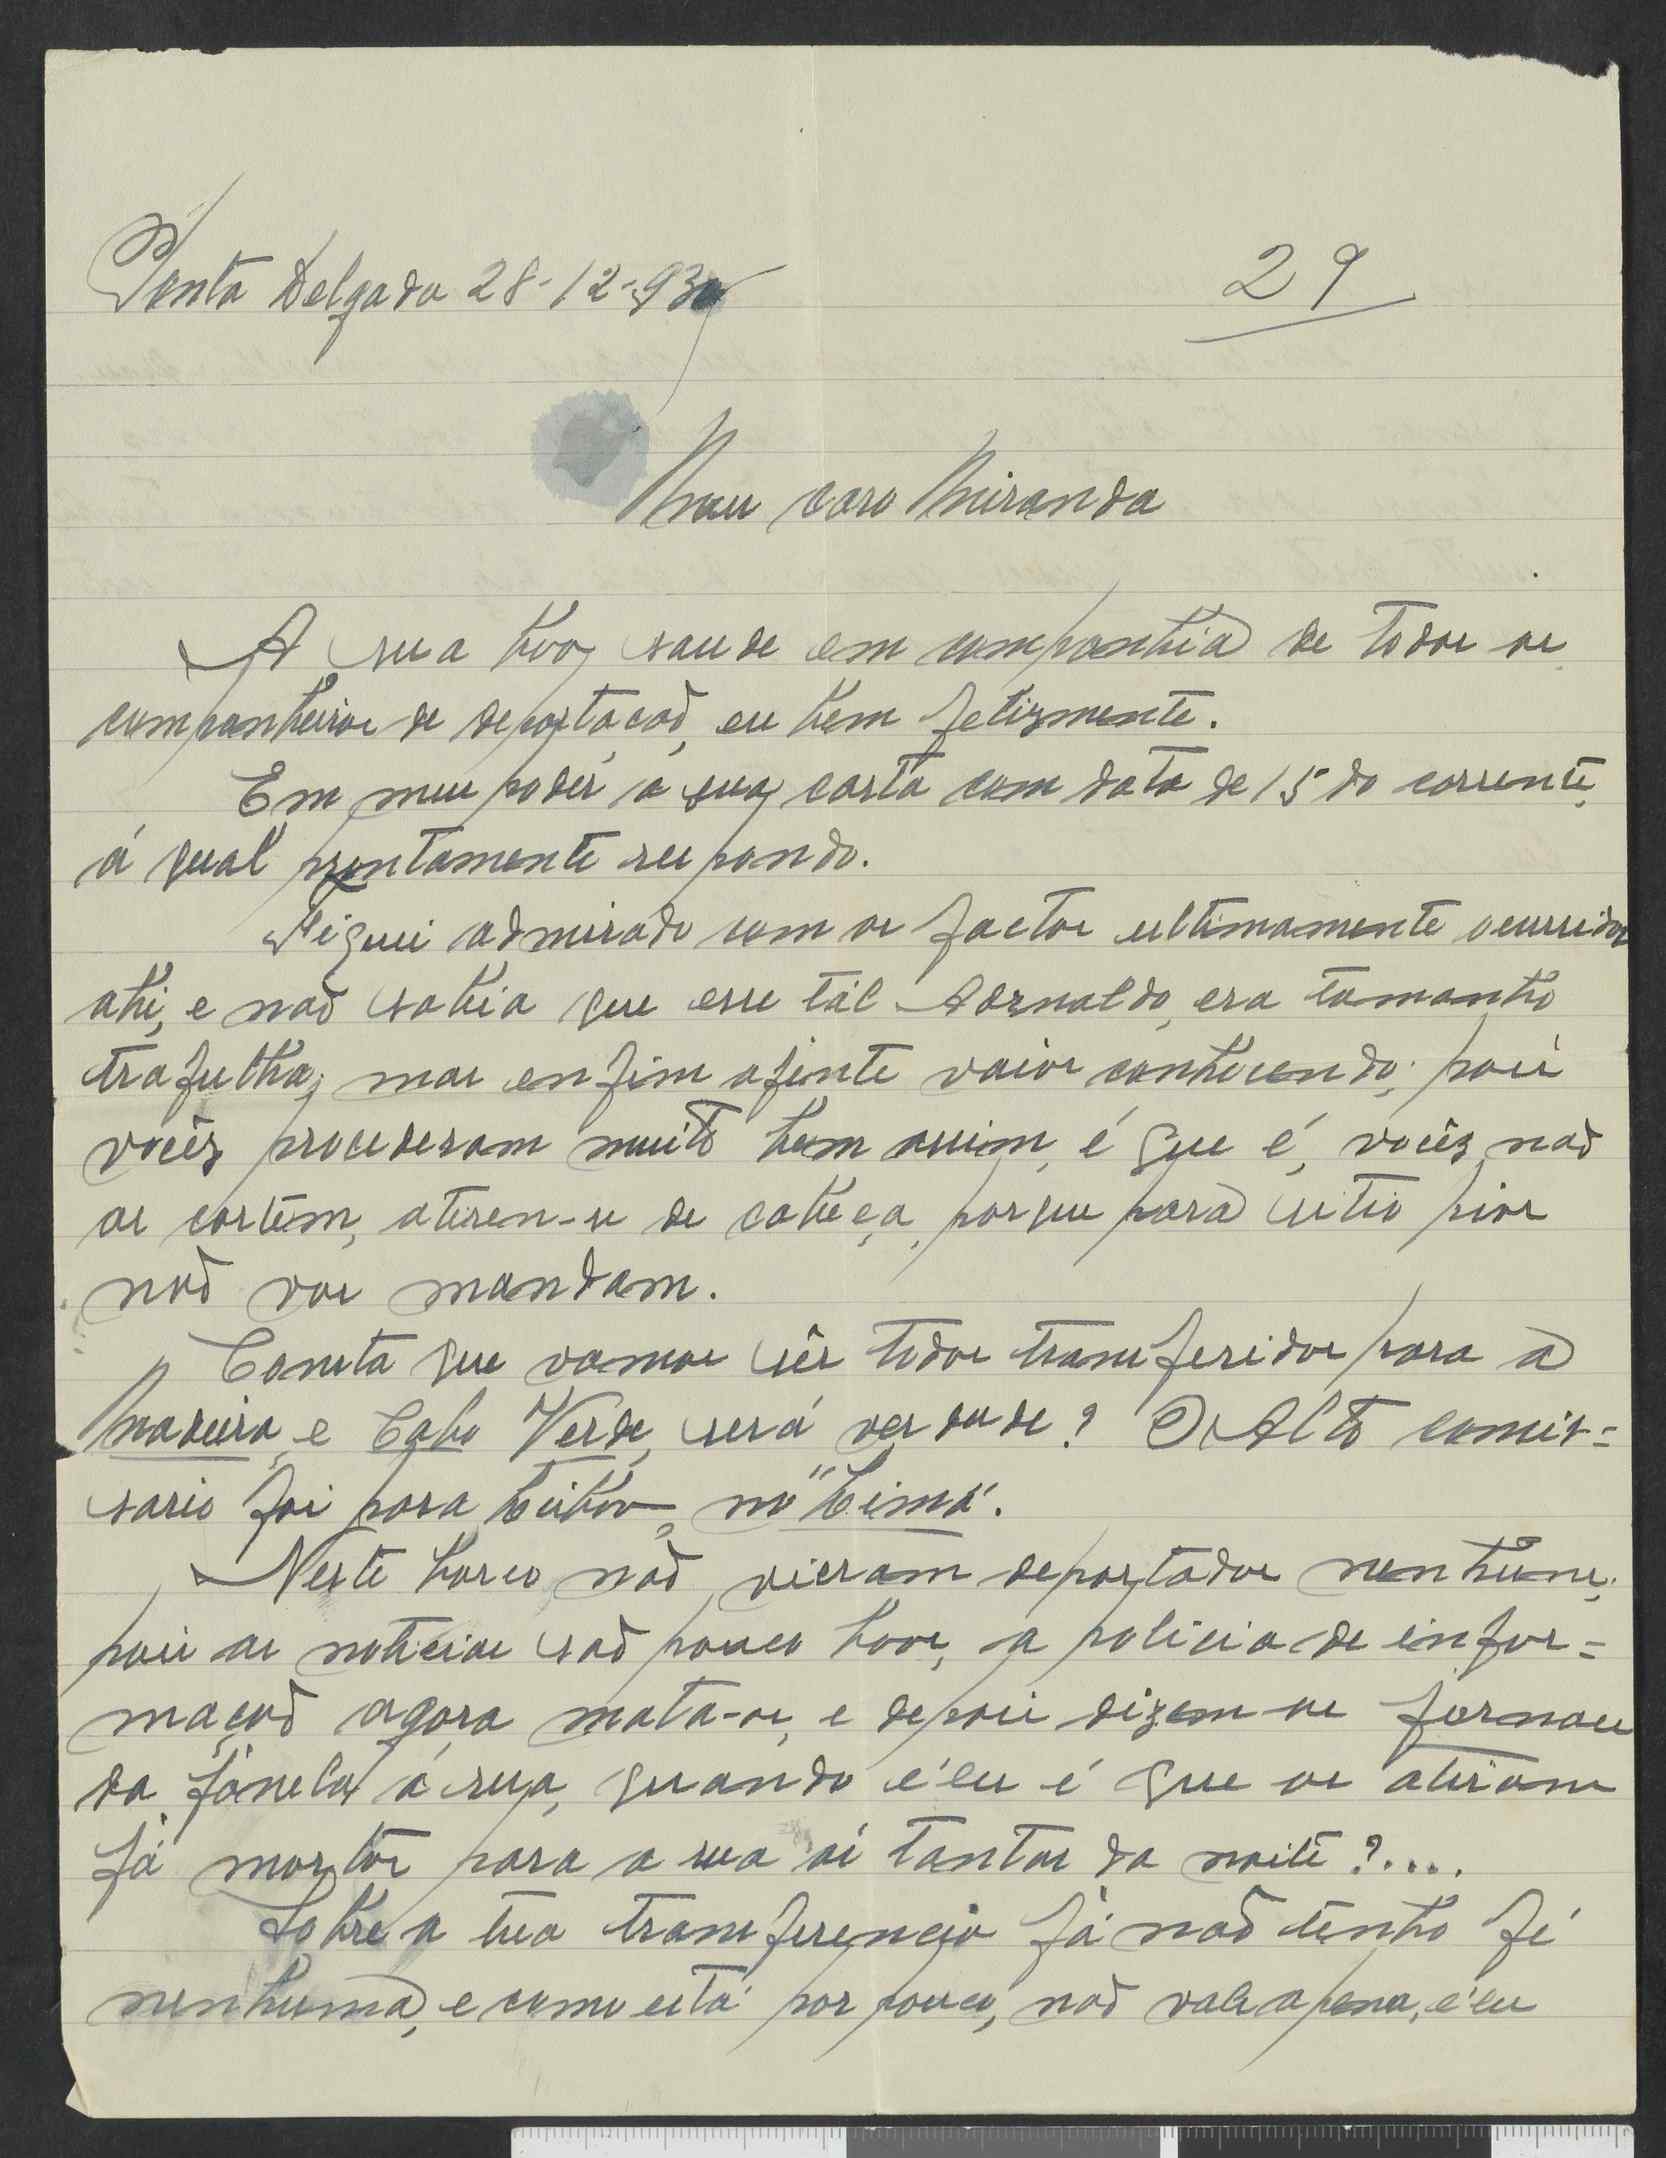 Ponta Delgada 28-12-930
29
Meu caro Miranda
A sua boa saude em companhia de todos os
companheiros de deportação, eu bem felizmente.
Em meu podêr a sua carta com data de 15 do corrente,
á qual prontamente respondo.
Fiquei admirado com os factos ultimamente ocurridos
ahi, e não sabia que esse tál Adrnaldo, era tamanho
trafulha; mas enfim agente vaios conhecendo; pois
vocêz procederam muito bem assim, é que é, vocêz não
os cortem, atiren-se de cabeça, porque para sitio pior
não vos mandam.
Consta que vamos sêr todos transferidos para a
Madeira e Cabo Verde, será verdade? O Alto comis=
sario foi para Lisboa, no "Lima".
Neste barco não vieram deportados nenhuns;
pois as noticias são pouco boas, a policia de infor=
mação agora mata-os, e depois dizem os jornaes
da jánela á rua, quando é'les é que os atiram
já mortos para a rua ás tantas da noite?....
Sobre a tua transferencia já não tenho fé
nenhuma, e como está por pouco, não vale apena, é'les